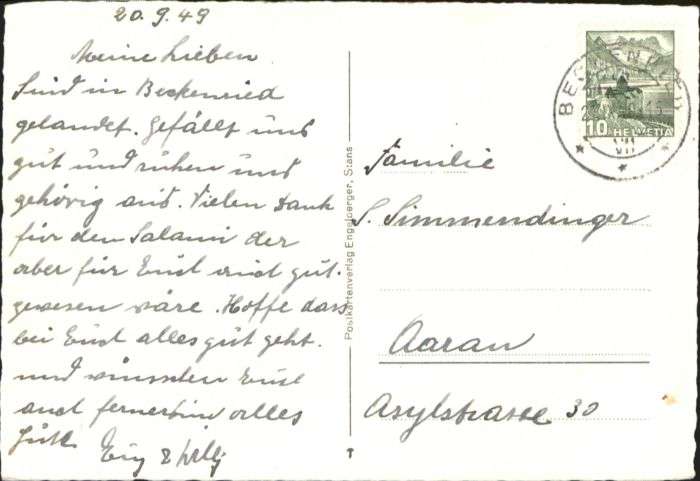 20.9.49
Meine Lieben
Sind in Beckenried
gelandet. Gefällt uns
gut und ruhen uns
gehörig aus. Vielen Dank
für den Salami der
aber für Euch auch gut
gewesen wäre. Hoffe dass
bei Euch alles gut geht.
und wünschen Euch
auch fernerhin alles
Gute.
Postkartenverlag Engelberger, Stans
BECKENRIED
VII
10 HELVETIA
Familie
S. Simmendinger
Aarau
Asylstrasse 30